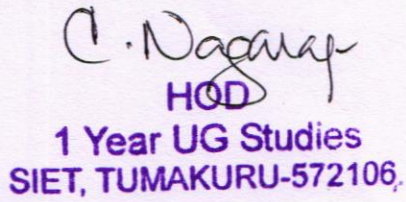 C. Nagaraj
HOD
1 Year UG Studies
SIET, TUMAKURU-572106.